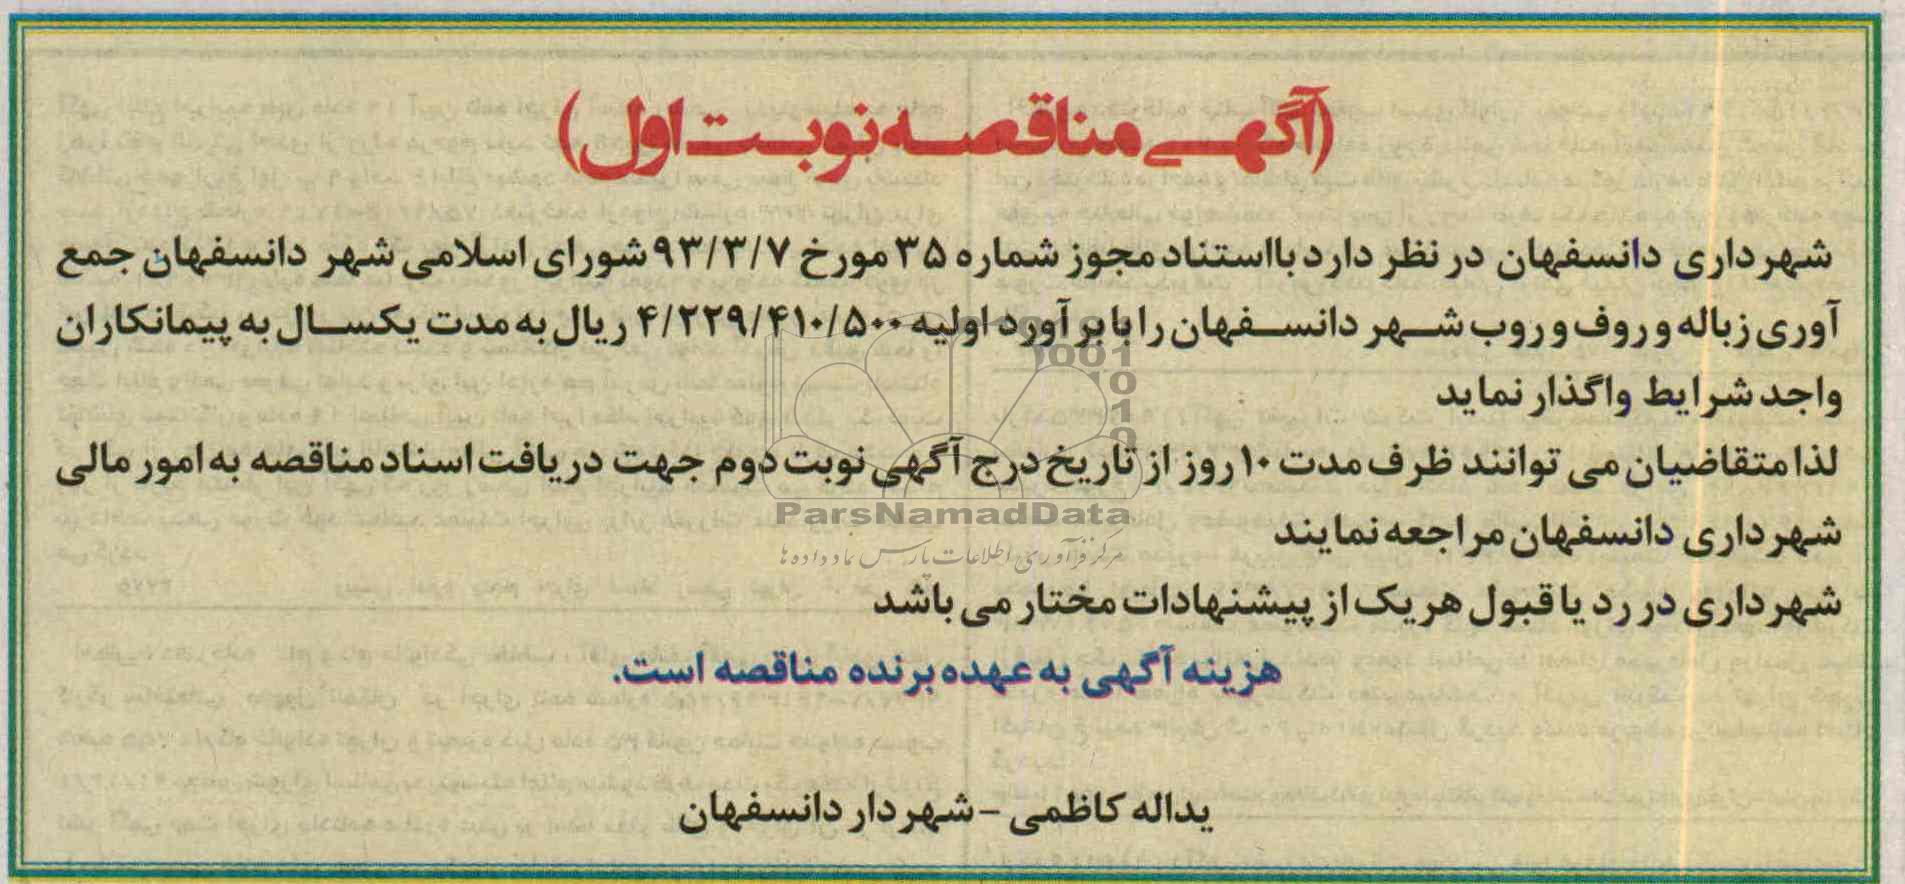 (آگهی مناقصه نوبت اول)
شهرداری دانسفهان در نظر دارد بااستناد مجوز شماره ۳۵ مورخ ۹۳/۳/۷ شورای اسلامی شهر دانسفهان جمع
آوری زباله و روف و روب شهر دانسفهان را با برآورد اولیه ۴/۲۲۹/۴۱۰/۵۰۰ ریال به مدت یکسال به پیمانکاران
واجد شرایط واگذار نماید
لذا متقاضیان می توانند ظرف مدت ۱۰ روز از تاریخ درج آگهی نوبت دوم جهت دریافت اسناد مناقصه به امور مالی
شهرداری دانسفهان مراجعه نمایند
شهرداری در رد یا قبول هر یک از پیشنهادات مختار می باشد
هزینه آگهی به عهده برنده مناقصه است.
یداله کاظمی - شهردار دانسفهان
ParsNamadData
مرکز فرآوری اطلاعات پارس نماد داده ها